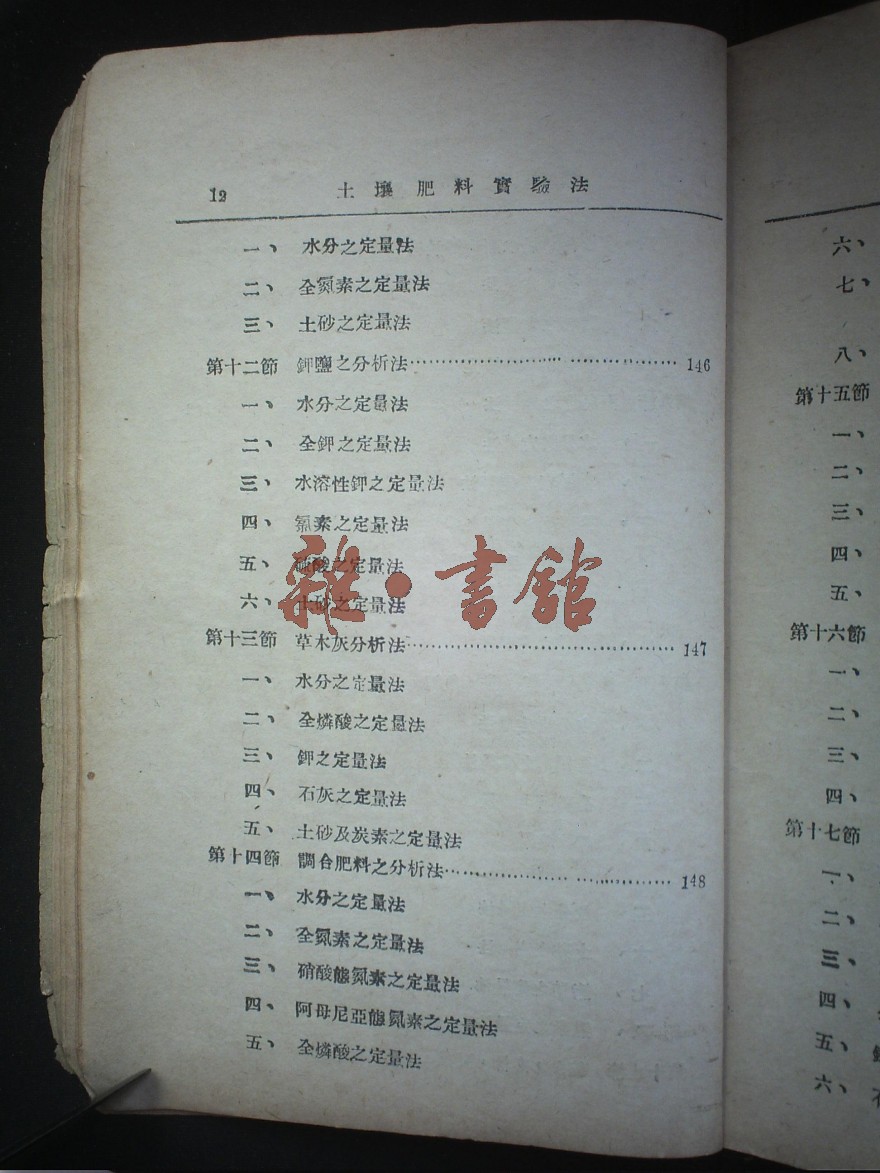 12 土壤肥料實驗法
一、 水分之定量法
二、 全氮素之定量法
三、 土砂之定量法
第十二節 鉀鹽之分析法 146
一、 水分之定量法
二、 全鉀之定量法
三、 水溶性鉀之定量法
四、 氯素之定量法
五、 硫酸之定量法
六、 土砂之定量法
雜·書館
第十三節 草木灰分析法 147
一、 水分之定量法
二、 全燐酸之定量法
三、 鉀之定量法
四、 石灰之定量法
五、 土砂及炭素之定量法
第十四節 調合肥料之分析法 148
一、 水分之定量法
二、 全氮素之定量法
三、 硝酸態氮素之定量法
四、 阿母尼亞態氮素之定量法
五、 全燐酸之定量法
六、
七、
八、
第十五節
一、
二、
三、
四、
五、
第十六節
一、
二、
三、
四、
第十七節
一、
二、
三、
四、
五、
六、 石